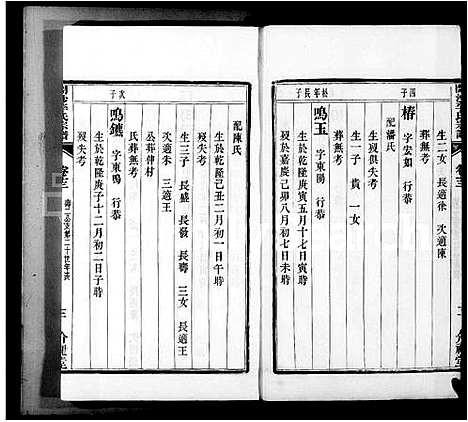 生二女 長適徐 次適陳
葬無考
四子
椿 字安如 行恭
配潘氏
生歿俱失考
葬無考
生一子 貴 一女
松年長子
鳴玉 字東陽 行恭
生於乾隆庚寅五月十七日寅時
歿於嘉慶己卯八月初七日未時
配陳氏
生於乾隆己丑二月初一日亥時
歿失考
生三子 長盛 長發 長壽 三女 長適王
次適王 三適王
公葬俥村
氏葬無考
次子
鳴鑣 字東暘 行恭
生於乾隆庚子十二月初二日子時
歿失考
卷三
三